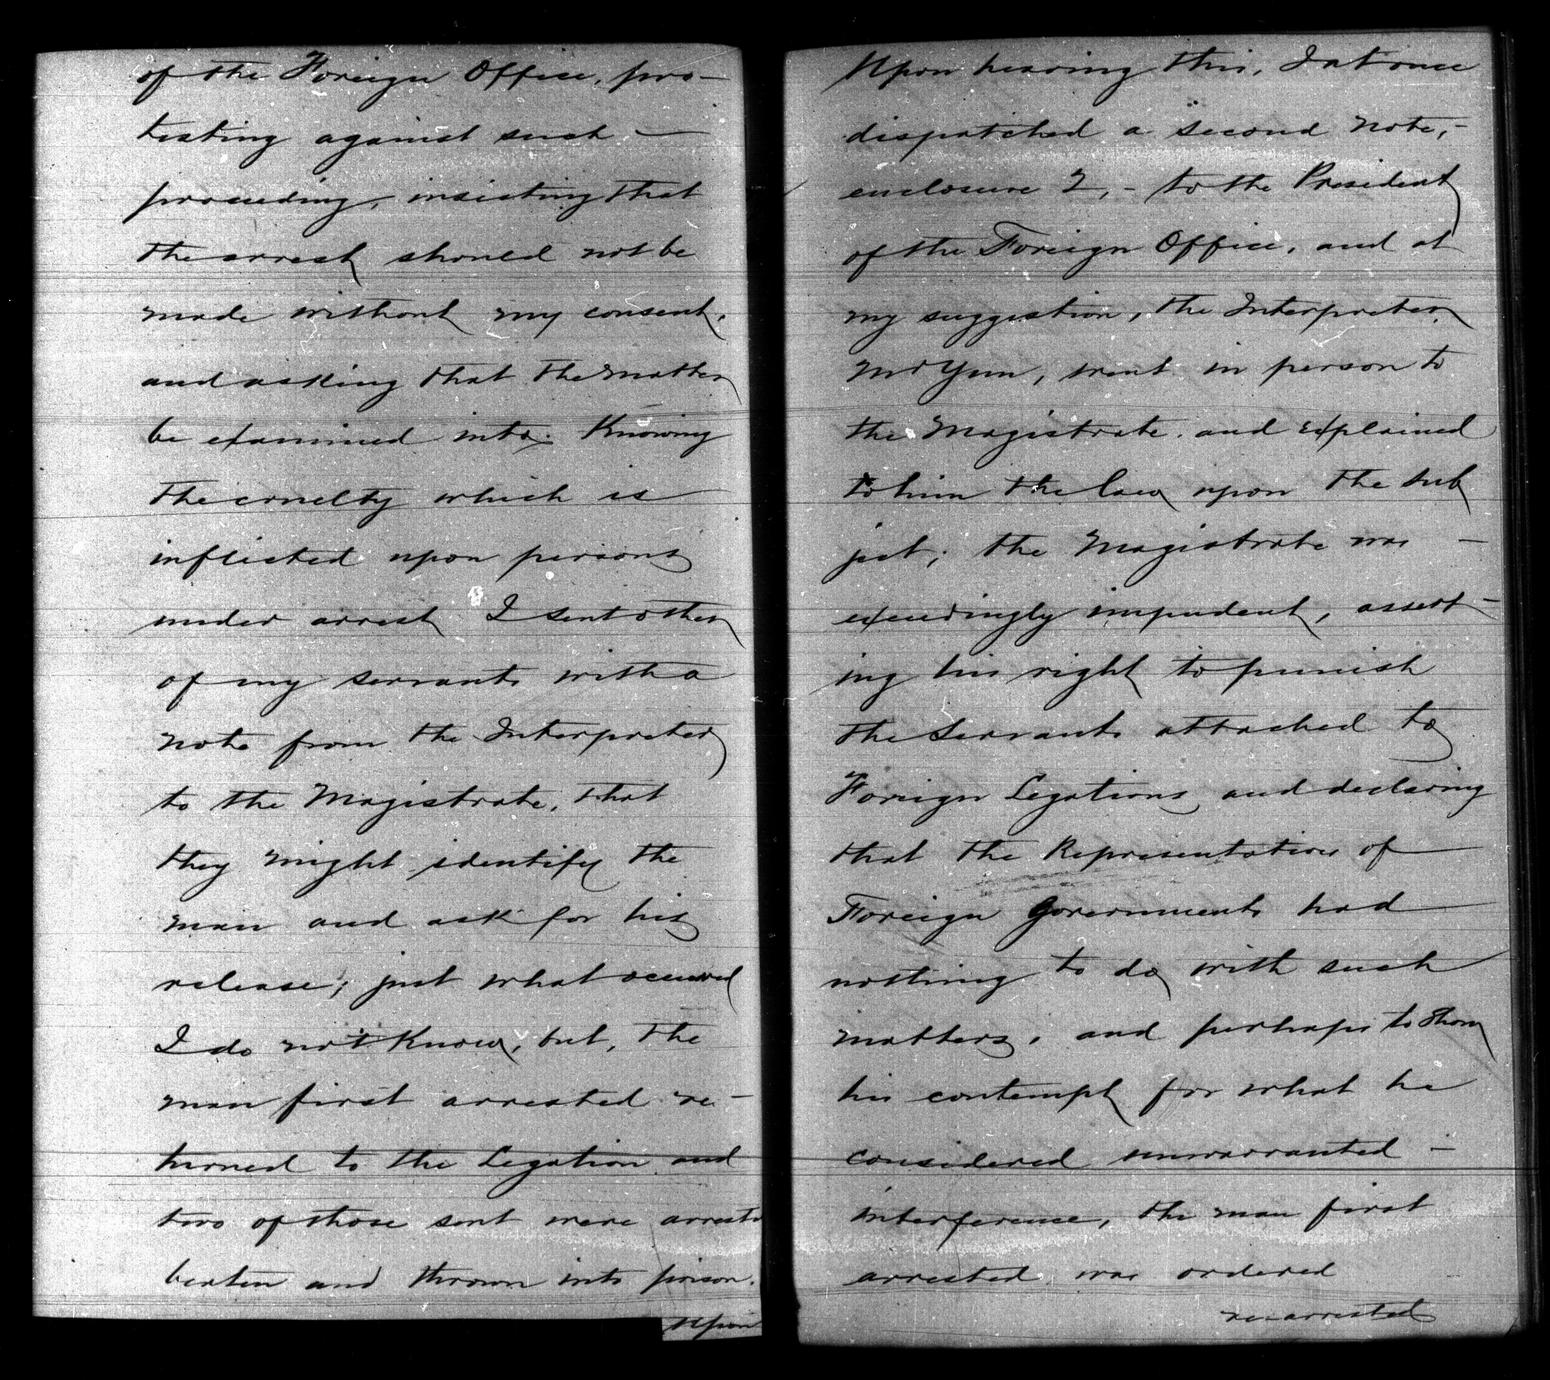 of the Foreign Office, pro-
testing against such —
proceeding, insisting that
the arrest should not be
made without my consent,
and asking that the matter
be examined into. Knowing
the cruelty which is
inflicted upon persons
under arrest I sent other
of my servants with a
note from the Interpreter
to the Magistrate, that
they might identify the
man and ask for his
release; just what occurred
I do not know, but, the
man first arrested re-
turned to the Legation and
two of those sent were arrested
beaten and thrown into prison.
Upon
Upon hearing this, I at once
dispatched a second note, -
enclosure 2, - to the President
of the Foreign Office, and at
my suggestion, the Interpreter
Mr Yun, went in person to
the Magistrate and explained
to him the law upon the sub
ject; the Magistrate was —
exceedingly impudent, assert-
ing his right to punish
the servants attached to
Foreign Legations and declaring
that the Representatives of
Foreign Governments had
nothing to do with such
matters, and perhaps to show
his contempt for what he
considered unwarranted -
interference, the man first
arrested was ordered
re-arrested